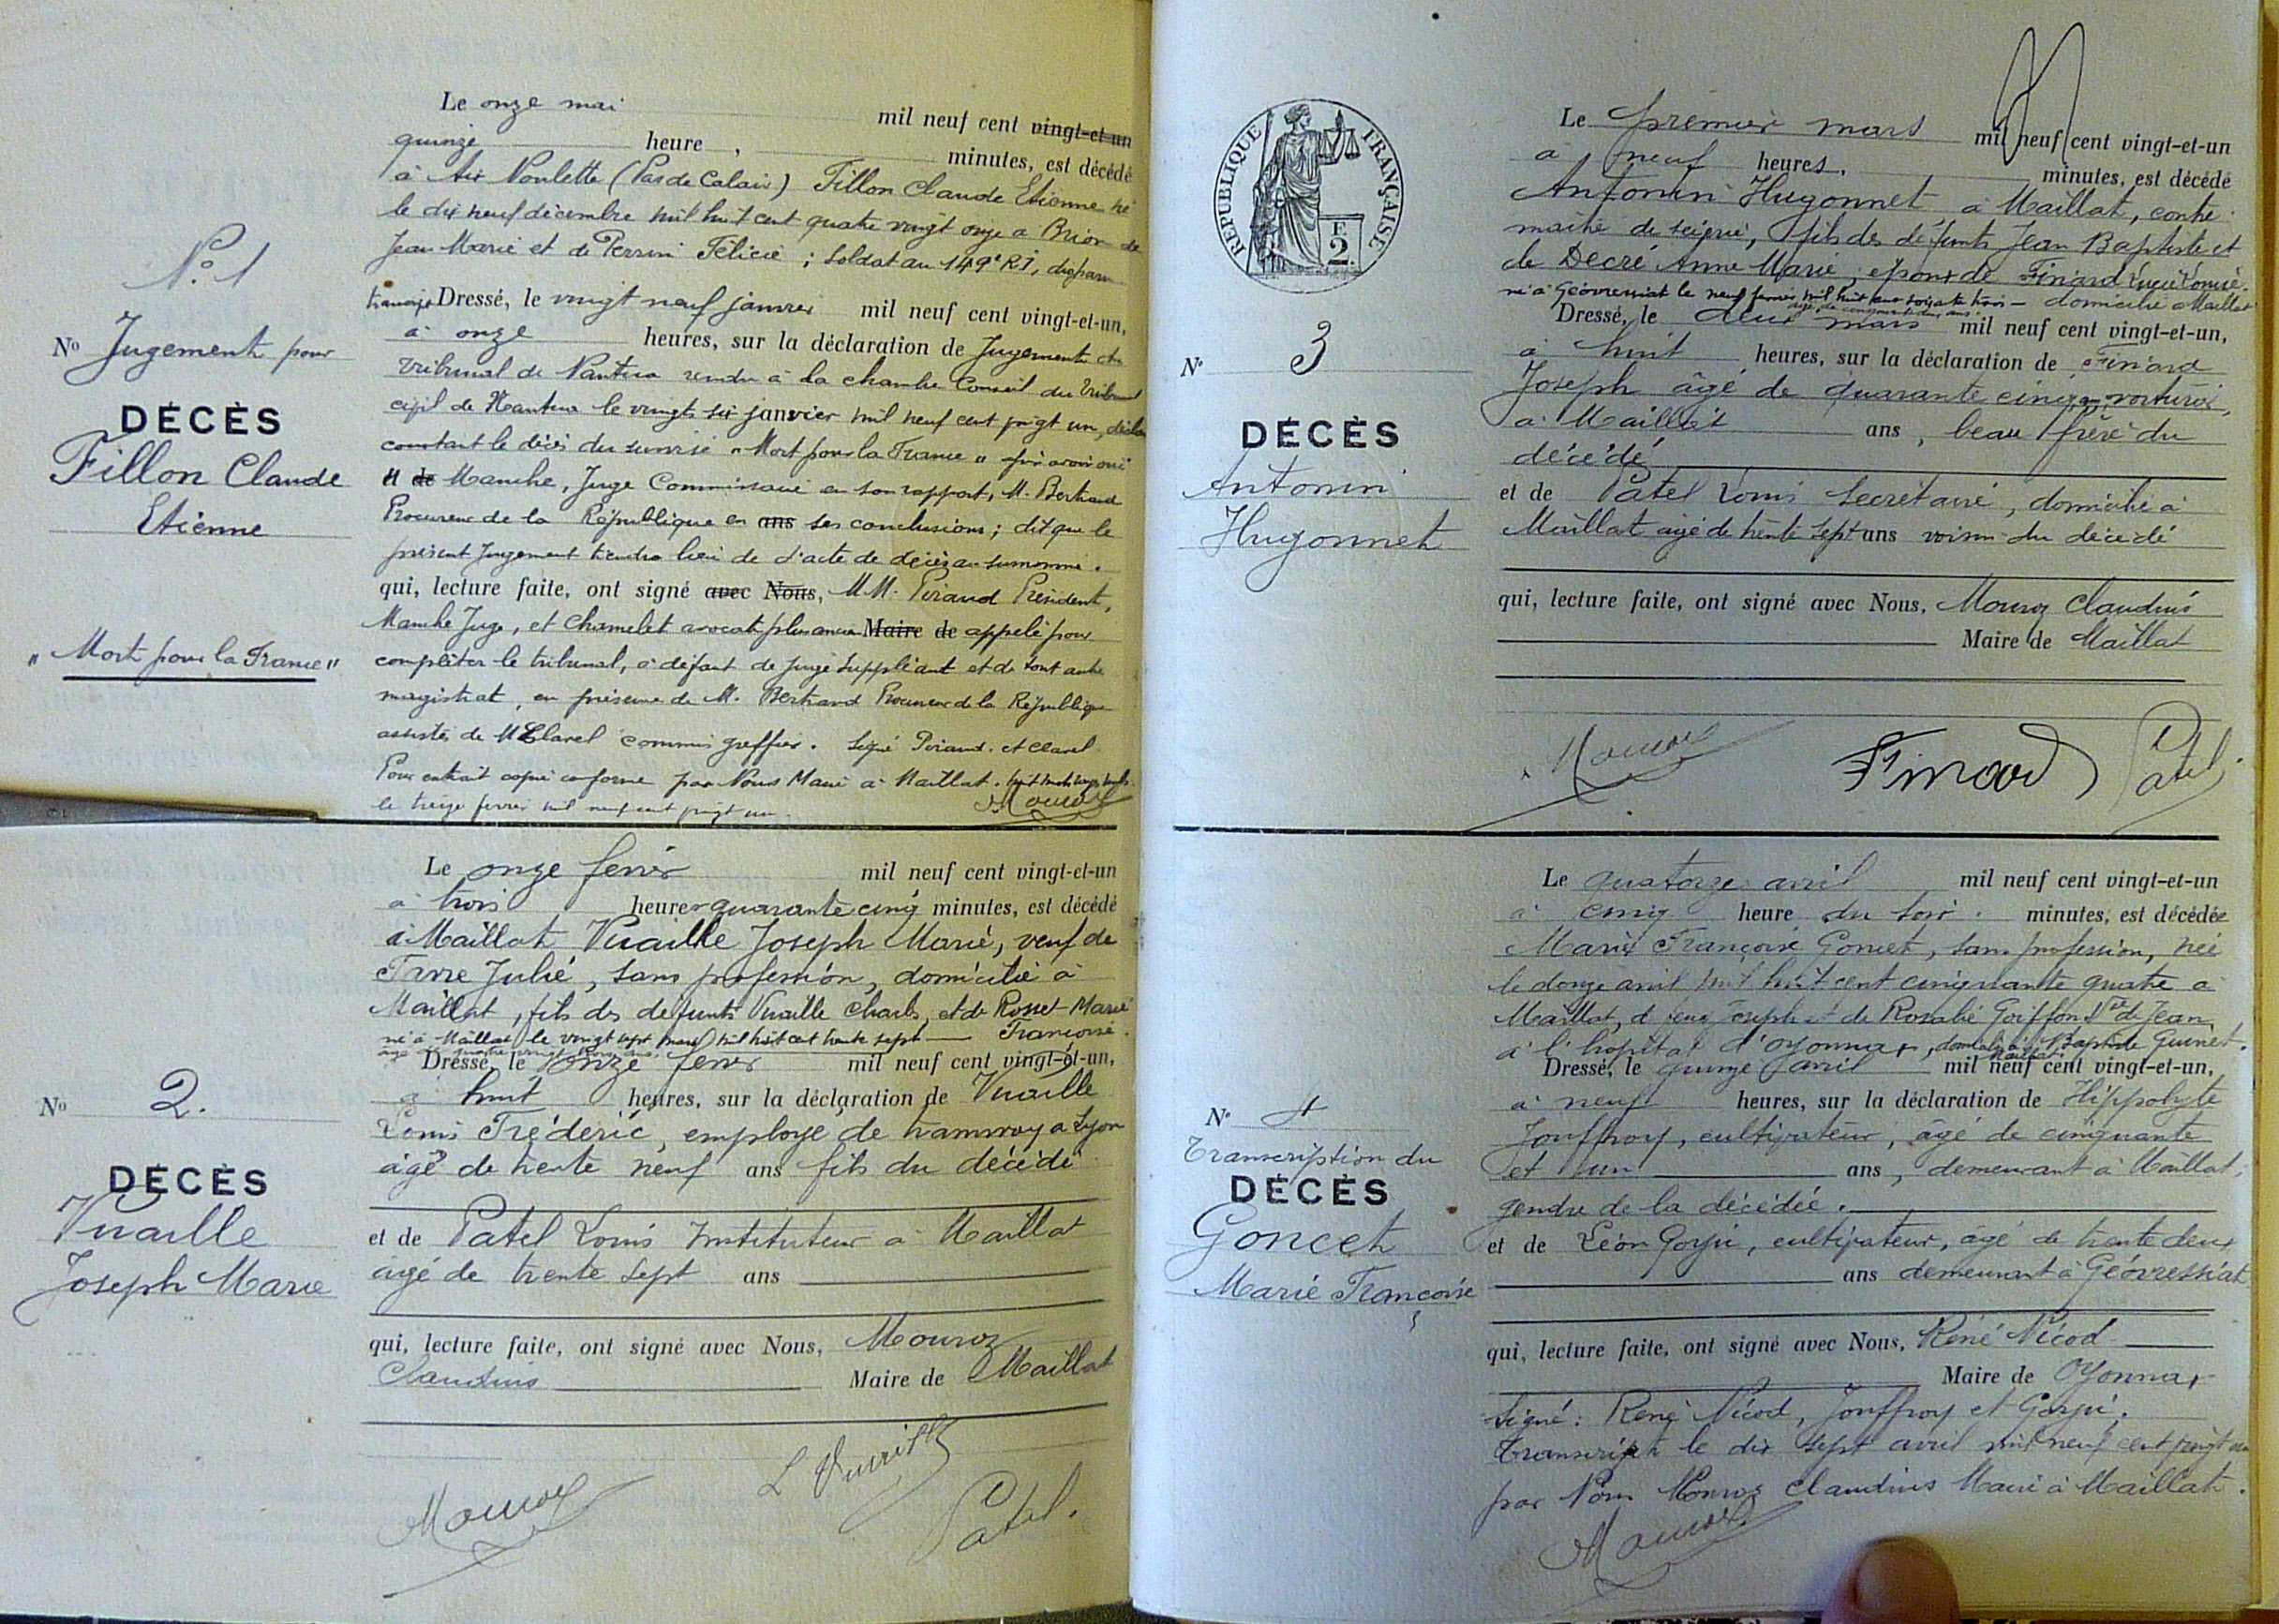 Le onze mai mil neuf cent vingt-et-un
quinze heure , minutes, est décédé
à Aix Noulette (Pas de Calais) Fillon Claude Etienne né
le dix neuf décembre mil huit cent quatre vingt onze a Brion de
Jean Marie et de Perrin Félicie ; soldat au 149e RI, disparu
N° 1
Dressé, le vingt neuf janvier mil neuf cent vingt-et-un,
à onze heures, sur la déclaration de Jugement du
N° Jugement pour
tribunal de Nantua rendu à la chambre Conseil du tribunal
civil de Nantua le vingt six janvier mil neuf cent vingt un,
DÉCÈS
constant le décès du surnommé "Mort pour la France"
Fillon Claude
Etienne
Manche, Juge Commissaire en son rapport, M. Bertrand
Procureur de la République en ans ses conclusions ; dit que le
présent Jugement tiendra lieu de d'acte de décès au surnommé.
qui, lecture faite, ont signé avec Nous, MM. Piraud Président,
Manche Juge, et Chamelet avocat plus ancien Maire de appelé pour
"Mort pour la France"
compléter le tribunal, à défaut de Juge Suppléant et de tout autre
magistrat, en présence de M. Bertrand Procureur de la République
assistés de M Clavel commis greffier. Signé Piraud. et Clavel
Pour extrait copié conforme par Nous Maire à Maillat.
le treize fevrier mil neuf cent vingt un.
Mouroz
Le onze fevrier mil neuf cent vingt-et-un
à trois heures quarante cinq minutes, est décédé
à Maillat Vuaille Joseph Marie, veuf de
Julie, sans profession, domicilié à
Maillat, fils des defunts Vuaille Charles, et de Rosset Marie
né à Maillat le vingt sept mars mil huit cent trente sept — Françoise.
Dressé, le onze fevrier mil neuf cent vingt-et-un,
à huit heures, sur la déclaration de Vuaille
N° 2.
Louis Frédéric, employé de tramway a Lyon
âgé de trente neuf ans fils du décédé
DÉCÈS
Vuaille
Joseph Marie
et de Patel Louis Instituteur à Maillat
âgé de trente sept ans
qui, lecture faite, ont signé avec Nous, Mouroz
Claudius Maire de Maillat
L Vuaille
Mouroz
Patel.
RÉPUBLIQUE FRANÇAISE
E
2.
Le premier mars mil neuf cent vingt-et-un
à neuf heures, minutes, est décédé
Antonin Hugonnet à Maillat, contre
maître de scierie, fils des défunts Jean Baptiste et
de Decré Anne Marie, époux de Finard Lucie Louise.
né à Géovressiat le neuf fevrier mil huit cent soixante trois — domicilié a Maillat
Dressé, le deux mars mil neuf cent vingt-et-un,
N° 3
à huit heures, sur la déclaration de Finard
Joseph âgé de quarante cinq voiturier,
à Maillat ans, beau frère du
décédé
DÉCÈS
Antonin
Hugonnet
et de Patel Louis Secrétaire, domicilié à
Maillat âgé de trente sept ans voisin du décédé
qui, lecture faite, ont signé avec Nous, Mouroz Claudius
Maire de Maillat
Mouroz Finard Patel
Le quatorze avril mil neuf cent vingt-et-un
à cinq heure du soir. minutes, est décédée
Marie Françoise Goncet, sans profession, née
le douze avril mil huit cent cinquante quatre à
Maillat, d feux Joseph et de Rosalie Goiffon Vve de Jean
à l'hopital d'Oyonnax, domiciliée à Maillat Baptiste Guinet.
Dressé, le quinze avril mil neuf cent vingt-et-un,
à neuf heures, sur la déclaration de Hippolyte
N° 4
Jouffroy, cultivateur, âgé de cinquante
et un ans, demeurant à Maillat,
Transcription du
DÉCÈS
Goncet
Marie Françoise
gendre de la décédée.
et de Léon Gorju, cultivateur, âgé de trente deux
ans demeurant à Géovressiat
qui, lecture faite, ont signé avec Nous, René Nicod
Maire de Oyonnax
Signé : René Nicod, Jouffroy et Gorju.
Transcript le dix sept avril mil neuf cent vingt un
par Nous Mouroz Claudius Maire à Maillat.
Mouroz